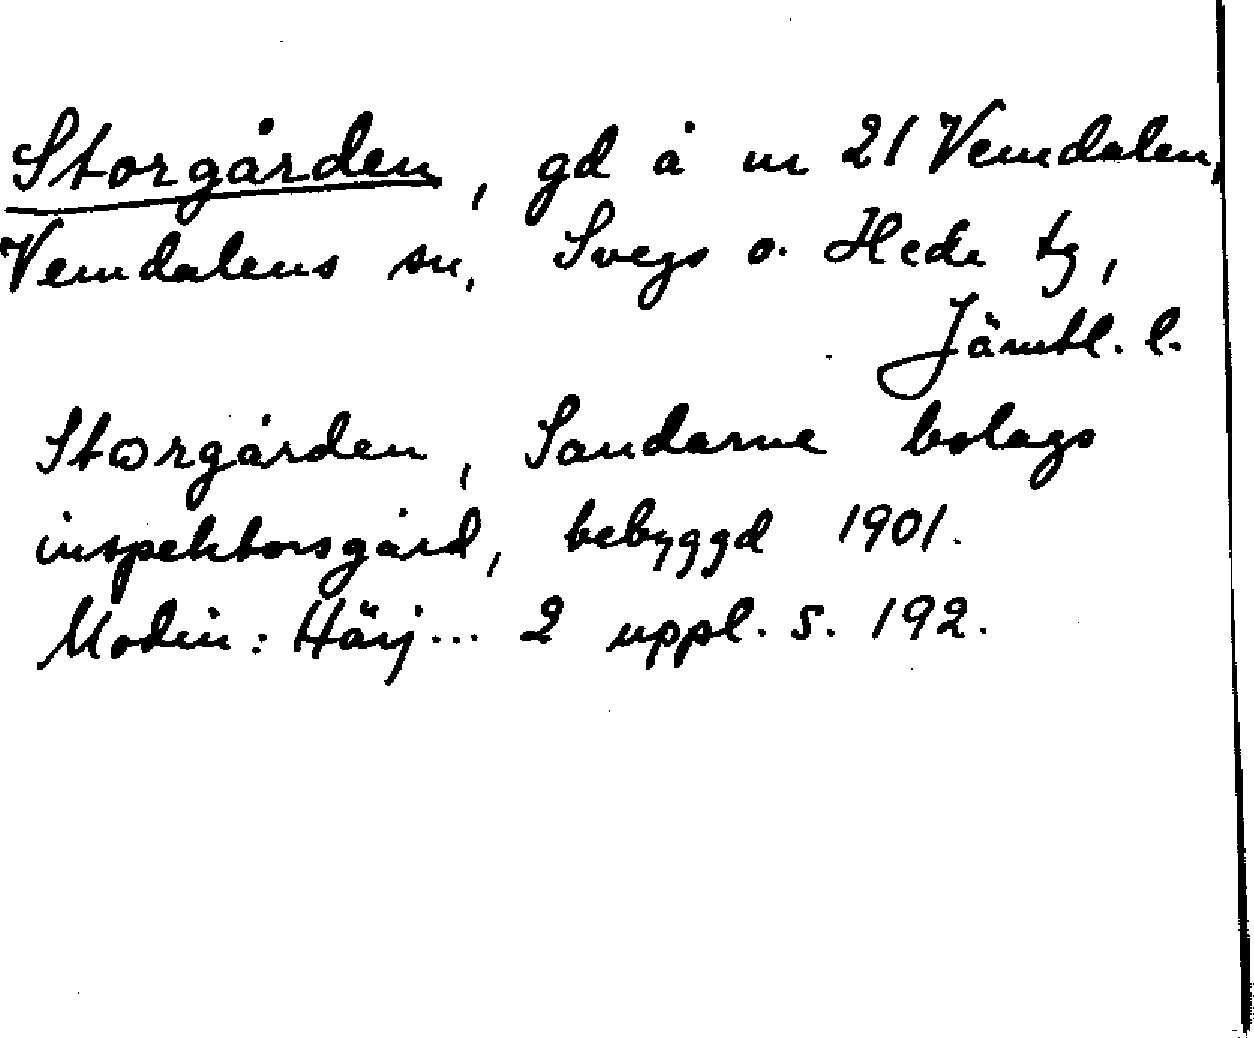 Storgården, gd å nr 21 Vemdalen,
Vemdalens sn, Svegs o. Hede tg,
Jämtl. l.
Storgården, Sandarne bolags
inspektorsgård, bebyggd 1901.
Modin: Härj... 2 uppl. s. 192.